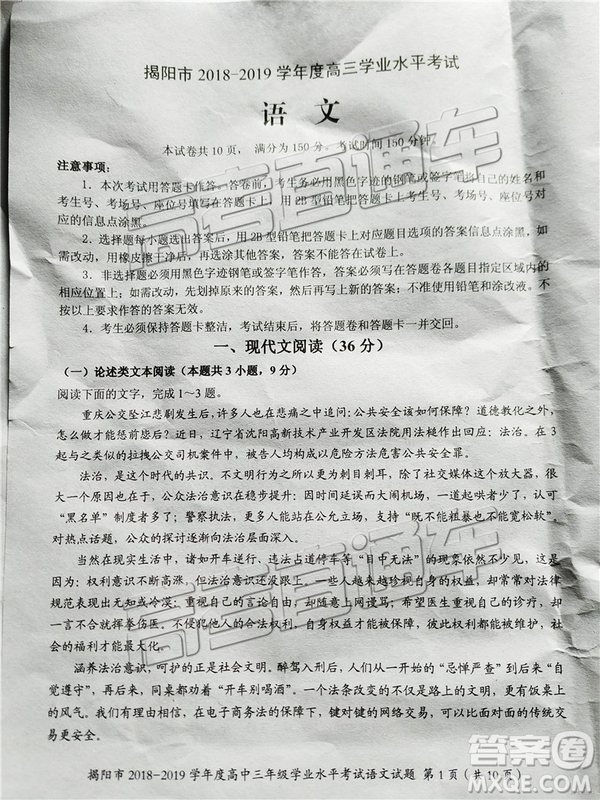 揭阳市 2018-2019 学年度高三学业水平考试
语 文
本试卷共 10 页, 满分为 150 分。考试时间 150 分钟。
注意事项:
1. 本次考试用答题卡作答。答卷前,考生务必用黑色字迹的钢笔或签字笔将自己的姓名和
考生号、考场号、座位号填写在答题卡上。用 2B 型铅笔把答题卡上考生号、考场号、座位号对
应的信息点涂黑。
2. 选择题每小题选出答案后,用 2B 型铅笔把答题卡上对应题目选项的答案信息点涂黑,如
需改动,用橡皮擦干净后,再选涂其他答案,答案不能答在试卷上。
3. 非选择题必须用黑色字迹钢笔或签字笔作答,答案必须写在答题卷各题目指定区域内的
相应位置上;如需改动,先划掉原来的答案,然后再写上新的答案;不准使用铅笔和涂改液。不
按以上要求作答的答案无效。
4. 考生必须保持答题卡整洁,考试结束后,将答题卷和答题卡一并交回。
一、现代文阅读(36 分)
(一)论述类文本阅读(本题共 3 小题,9 分)
阅读下面的文字,完成 1~3 题。
重庆公交坠江悲剧发生后,许多人也在悲痛之中追问:公共安全该如何保障?道德教化之外,
怎么做才才能惩前毖后?近日,辽宁省沈阳高新技术产业开发区法院用法槌作出回应:法治。在 3
起与之类似的拉拽公交司机案件中,被告人均构成以危险方法危害公共安全罪。
法治,是这个时代的共识。不文明行为之所以更为刺目刺耳,除了社交媒体这个放大器,很
大一个原因在于,公众法治意识在稳步提升:因航班延误而大闹机场,一道起哄者少了,认可
“黑名单”制度者多了;警察执法,更多人能站在公允立场,支持“既不能粗暴也不能宽松软”。
对热点话题,公众的探讨逐渐向法治层面深入。
当然在现实生活中,诸如开车逆行、违法占道停车等“目中无法”的现象依然不少见,也
因为:权利意识不断高涨,但法治意识没有跟上;人们越来越重视自身的权益,却常常对法律
规范表现出无知或冷漠:重视自己的言论自由,却随意上网谩骂;希望医生重视自己的诊疗,却
一言不合就挥拳伤医。不侵犯他人权利、不损害公共利益,自身利益才能得到更好维护,社会
的福利才能最大化。
涵养法治意识,呵护的正是社会文明。醉驾入刑后,人们从一开始的“忌惮严查”到“自
觉遵守”,再后来,同桌都劝着“开车别喝酒”。一个法条改变的不仅是路上的文明,更有饭桌上
的风气。我们有理由相信,在电子商务法的保障下,键对键的网络交易,可以比面对面的传统交
易更安全。
揭阳市 2018-2019 学年度高中三年级学业水平考试语文试题 第 1 页(共 10 页)
高考直通车
高考直通车
答案圈
MXQE.COM